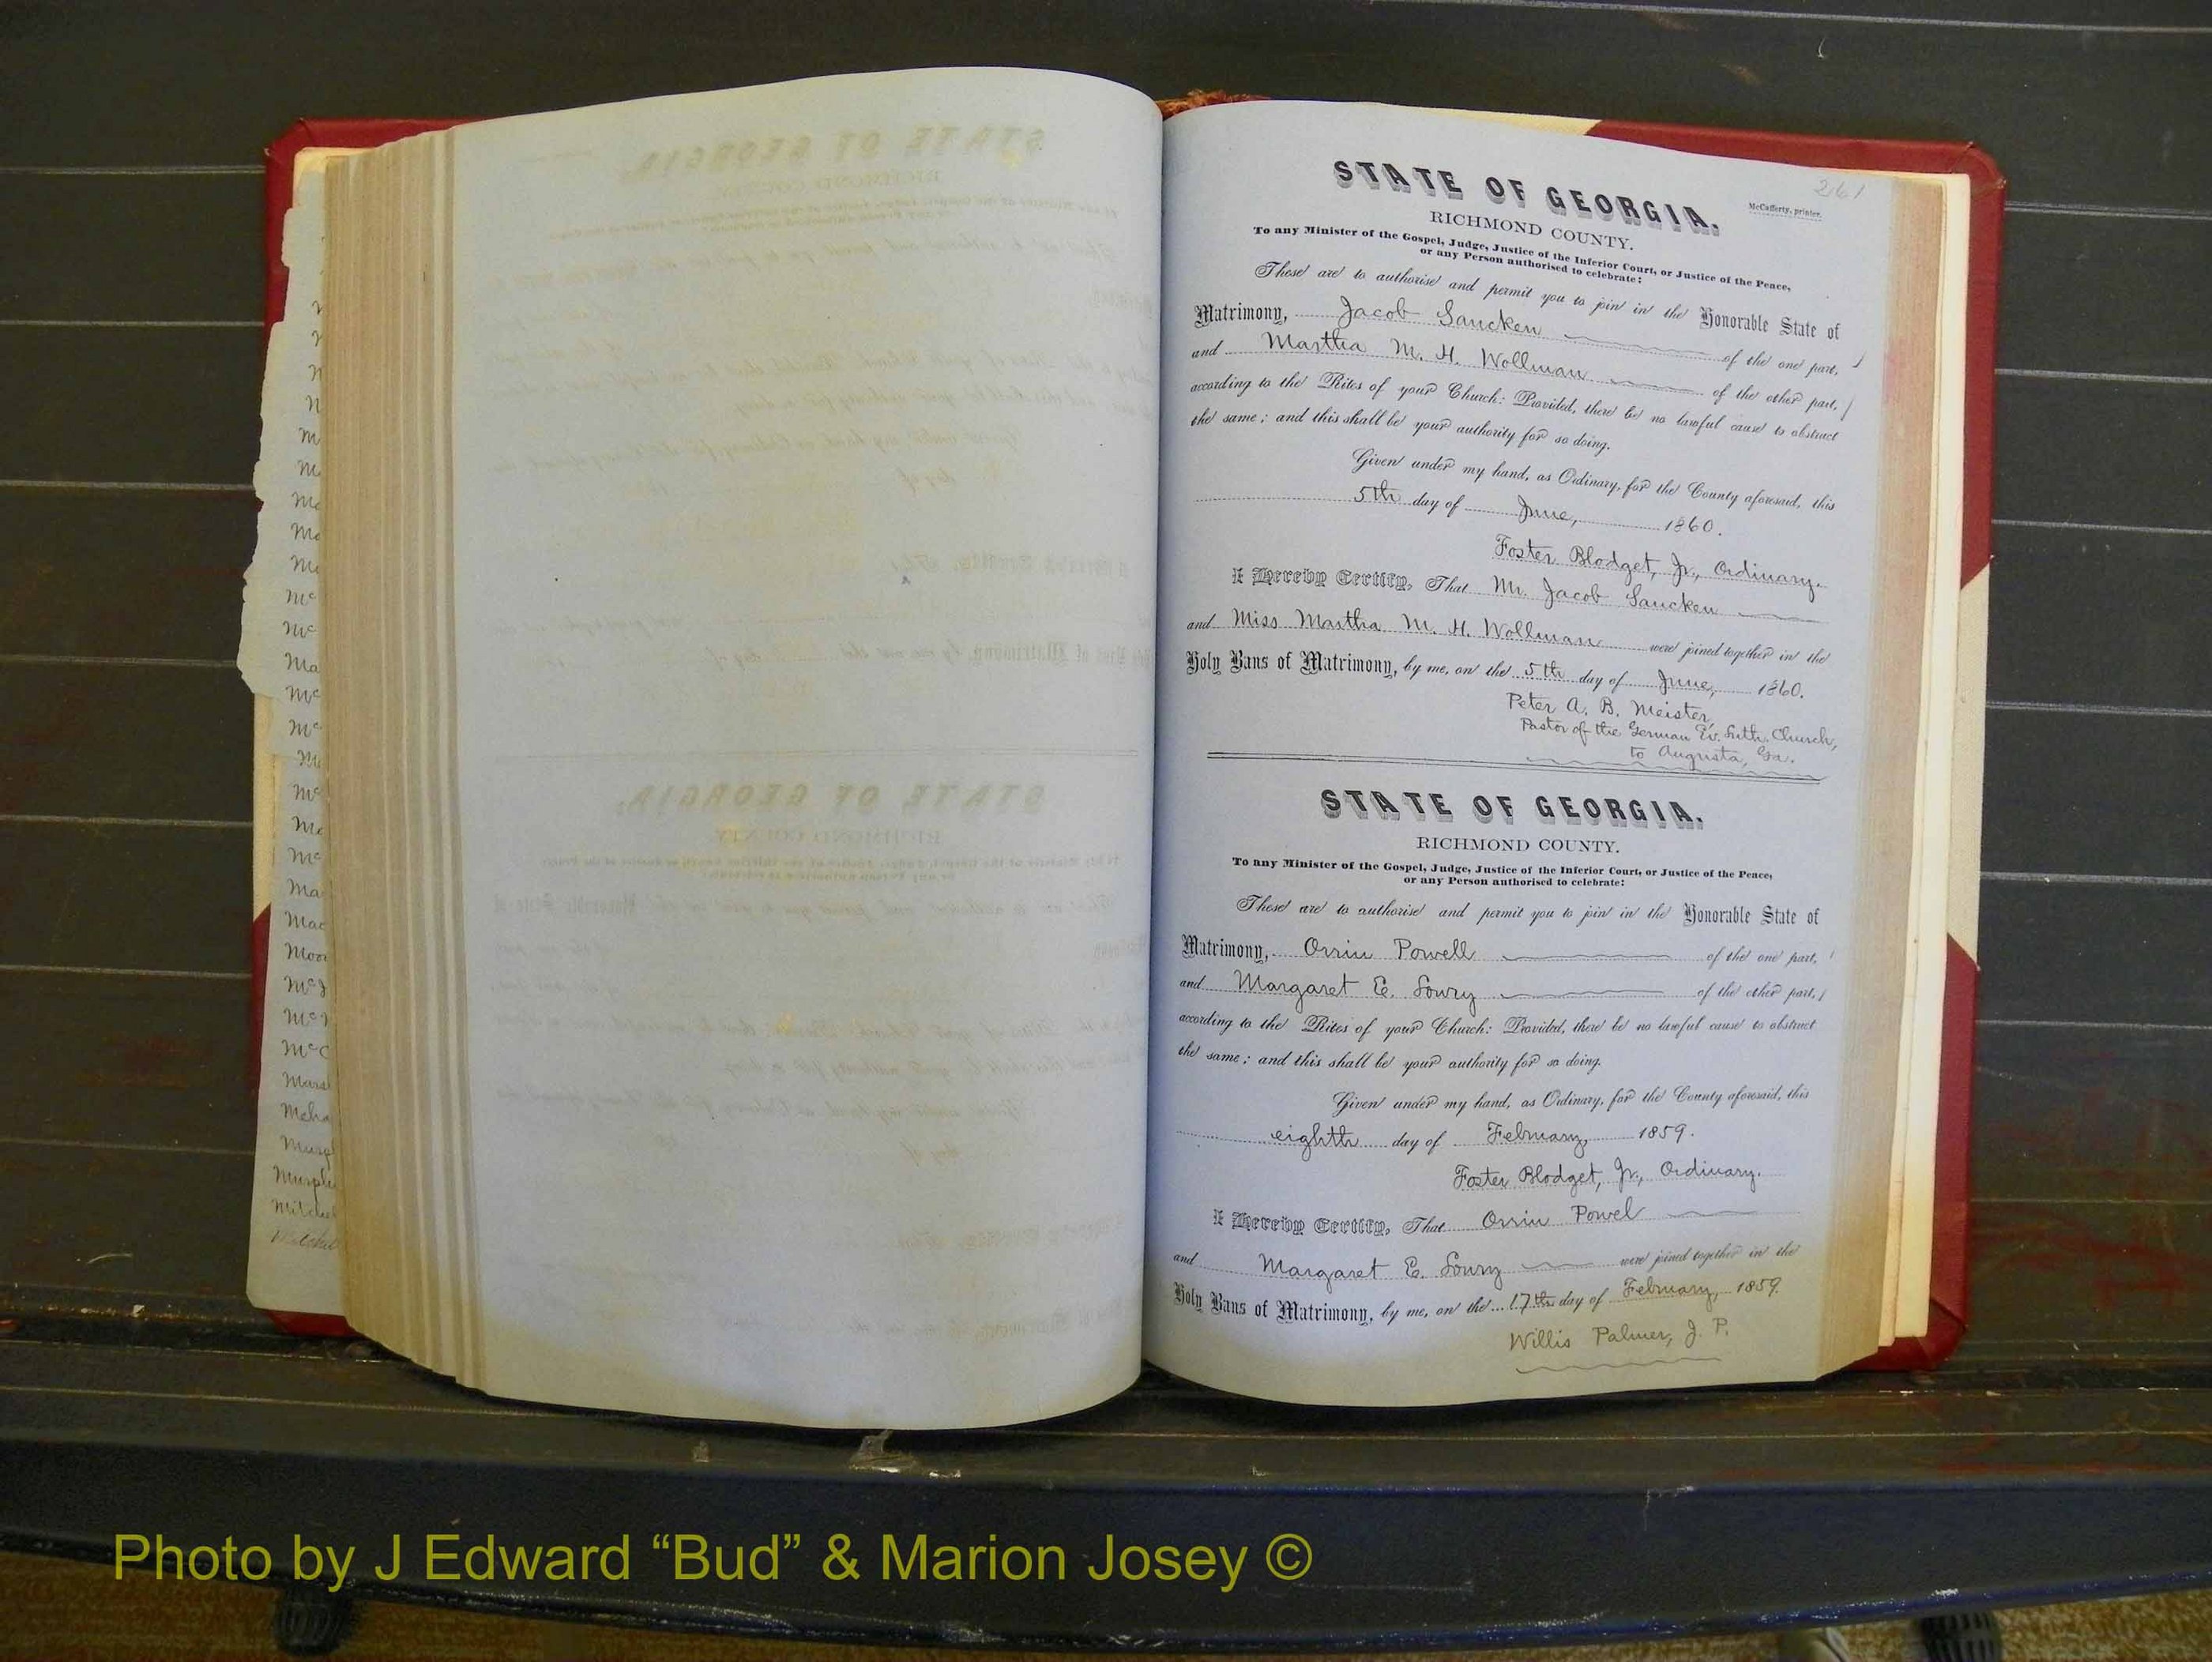 261
STATE OF GEORGIA.
McCafferty, printer.
RICHMOND COUNTY.
To any Minister of the Gospel, Judge, Justice of the Inferior Court, or Justice of the Peace,
or any Person authorised to celebrate:
These are to authorise and permit you to join in the Honorable State of
Matrimony, Jacob Saucken of the one part,
and Martha M. H. Wollman of the other part,
according to the Rites of your Church: Provided, there be no lawful cause to obstruct
the same; and this shall be your authority for so doing.
Given under my hand, as Ordinary, for the County aforesaid, this
5th day of June, 1860.
Foster Blodget, Jr., Ordinary.
I Hereby Certify, That Mr. Jacob Saucken
and Miss Martha M. H. Wollman were joined together in the
Holy Bans of Matrimony, by me, on the 5th day of June, 1860.
Peter A. B. Meister,
Pastor of the German Ev. Luth. Church,
to Augusta, Ga.
STATE OF GEORGIA.
RICHMOND COUNTY.
To any Minister of the Gospel, Judge, Justice of the Inferior Court, or Justice of the Peace,
or any Person authorised to celebrate:
These are to authorise and permit you to join in the Honorable State of
Matrimony, Orrin Powell of the one part,
and Margaret E. Lowry of the other part,
according to the Rites of your Church: Provided, there be no lawful cause to obstruct
the same; and this shall be your authority for so doing.
Given under my hand, as Ordinary, for the County aforesaid, this
eighth day of February, 1859.
Foster Blodget, Jr., Ordinary.
I Hereby Certify, That Orrin Powel
and Margaret E. Lowry were joined together in the
Holy Bans of Matrimony, by me, on the 17th day of February, 1859.
Willis Palmer, J. P.
Photo by J Edward “Bud” & Marion Josey ©